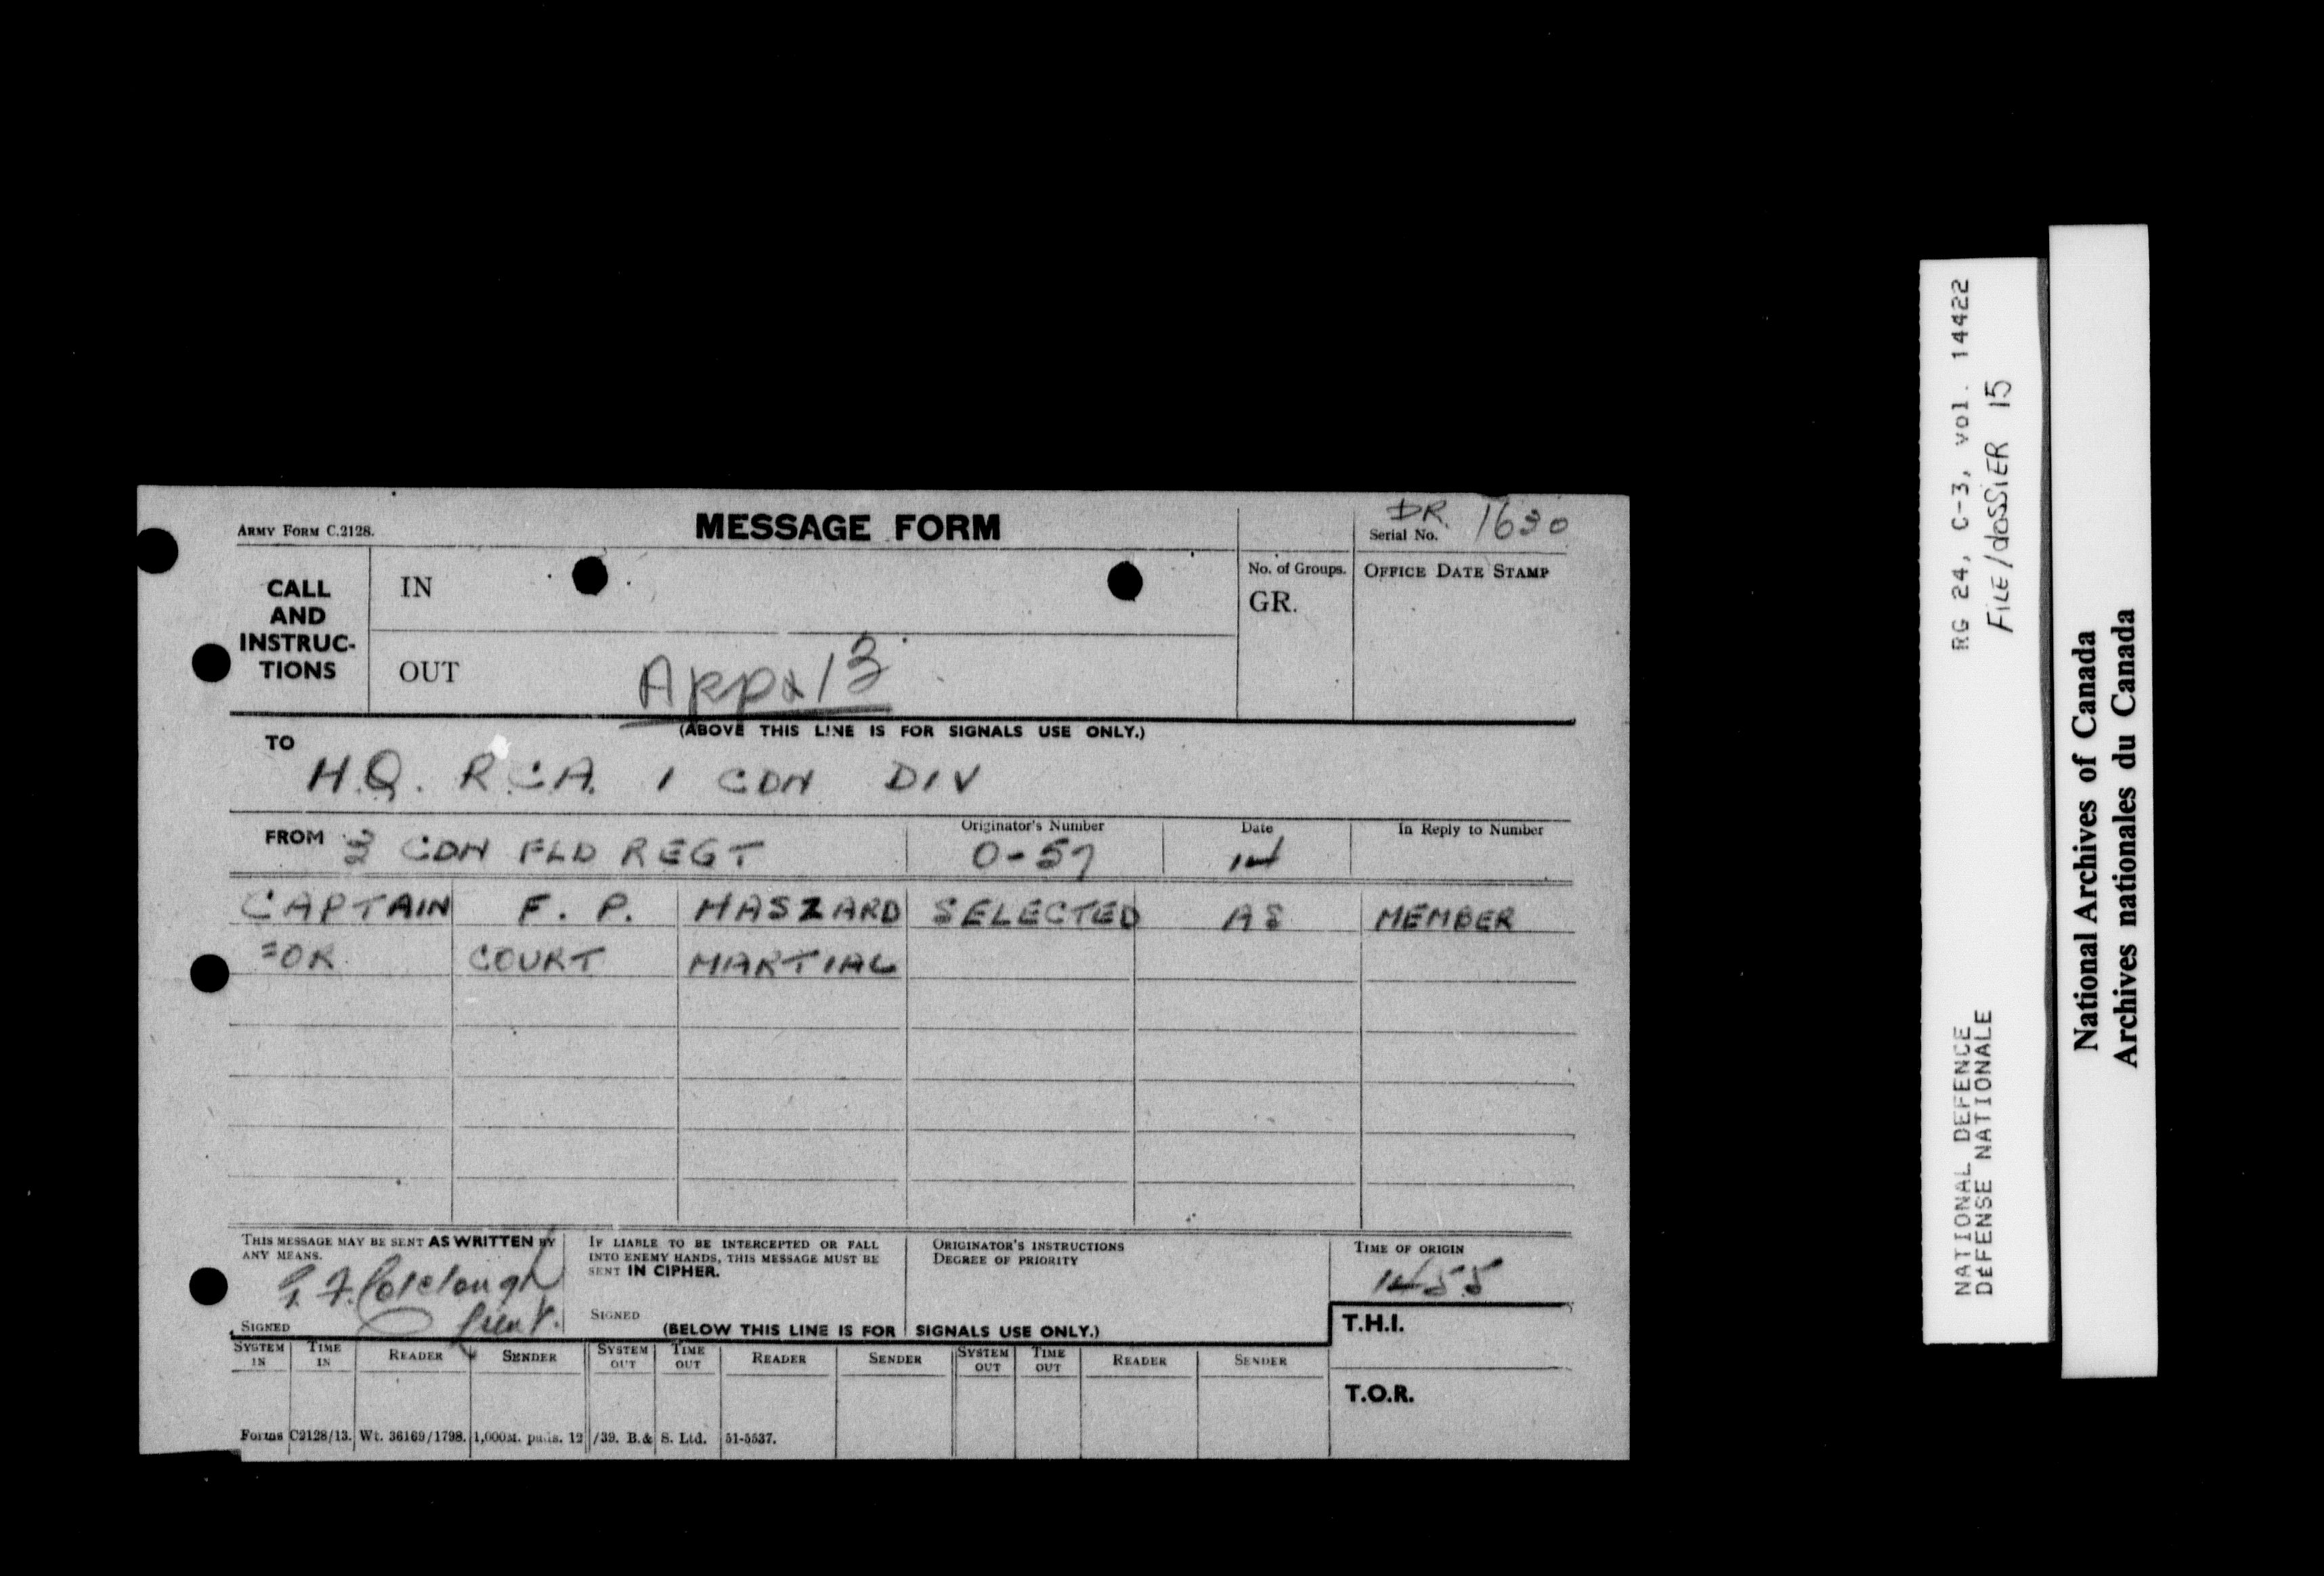 ARMY FORM C.2128.
MESSAGE FORM
DR. 1630
Serial No.
CALL AND INSTRUC-TIONS
IN
No. of Groups.
GR.
OFFICE DATE STAMP
OUT
Appx 13
(ABOVE THIS LINE IS FOR SIGNALS USE ONLY.)
TO
H.Q. R.C.A. 1 CDN DIV
FROM 3 CDN FLD REGT
Originator's Number
O-57
Date
14
In Reply to Number
CAPTAIN F. P. HASZARD SELECTED AS MEMBER
FOR COURT MARTIAL
THIS MESSAGE MAY BE SENT AS WRITTEN BY
ANY MEANS.
G. F. Colclough
Lieut.
SIGNED
IF LIABLE TO BE INTERCEPTED OR FALL
INTO ENEMY HANDS, THIS MESSAGE MUST BE
SENT IN CIPHER.
SIGNED
ORIGINATOR'S INSTRUCTIONS
DEGREE OF PRIORITY
TIME OF ORIGIN
1455
(BELOW THIS LINE IS FOR SIGNALS USE ONLY.)
T.H.I.
SYSTEM IN TIME IN READER SENDER SYSTEM OUT TIME OUT READER SENDER SYSTEM OUT TIME OUT READER SENDER
T.O.R.
Forms C2128/13. Wt. 36169/1798. 1,000M. pads. 12/39. B.& S. Ltd. 51-5537.
NATIONAL DEFENCE RG 24, C-3, vol. 14422
DEFENSE NATIONALE FILE/dossier 15
National Archives of Canada
Archives nationales du Canada